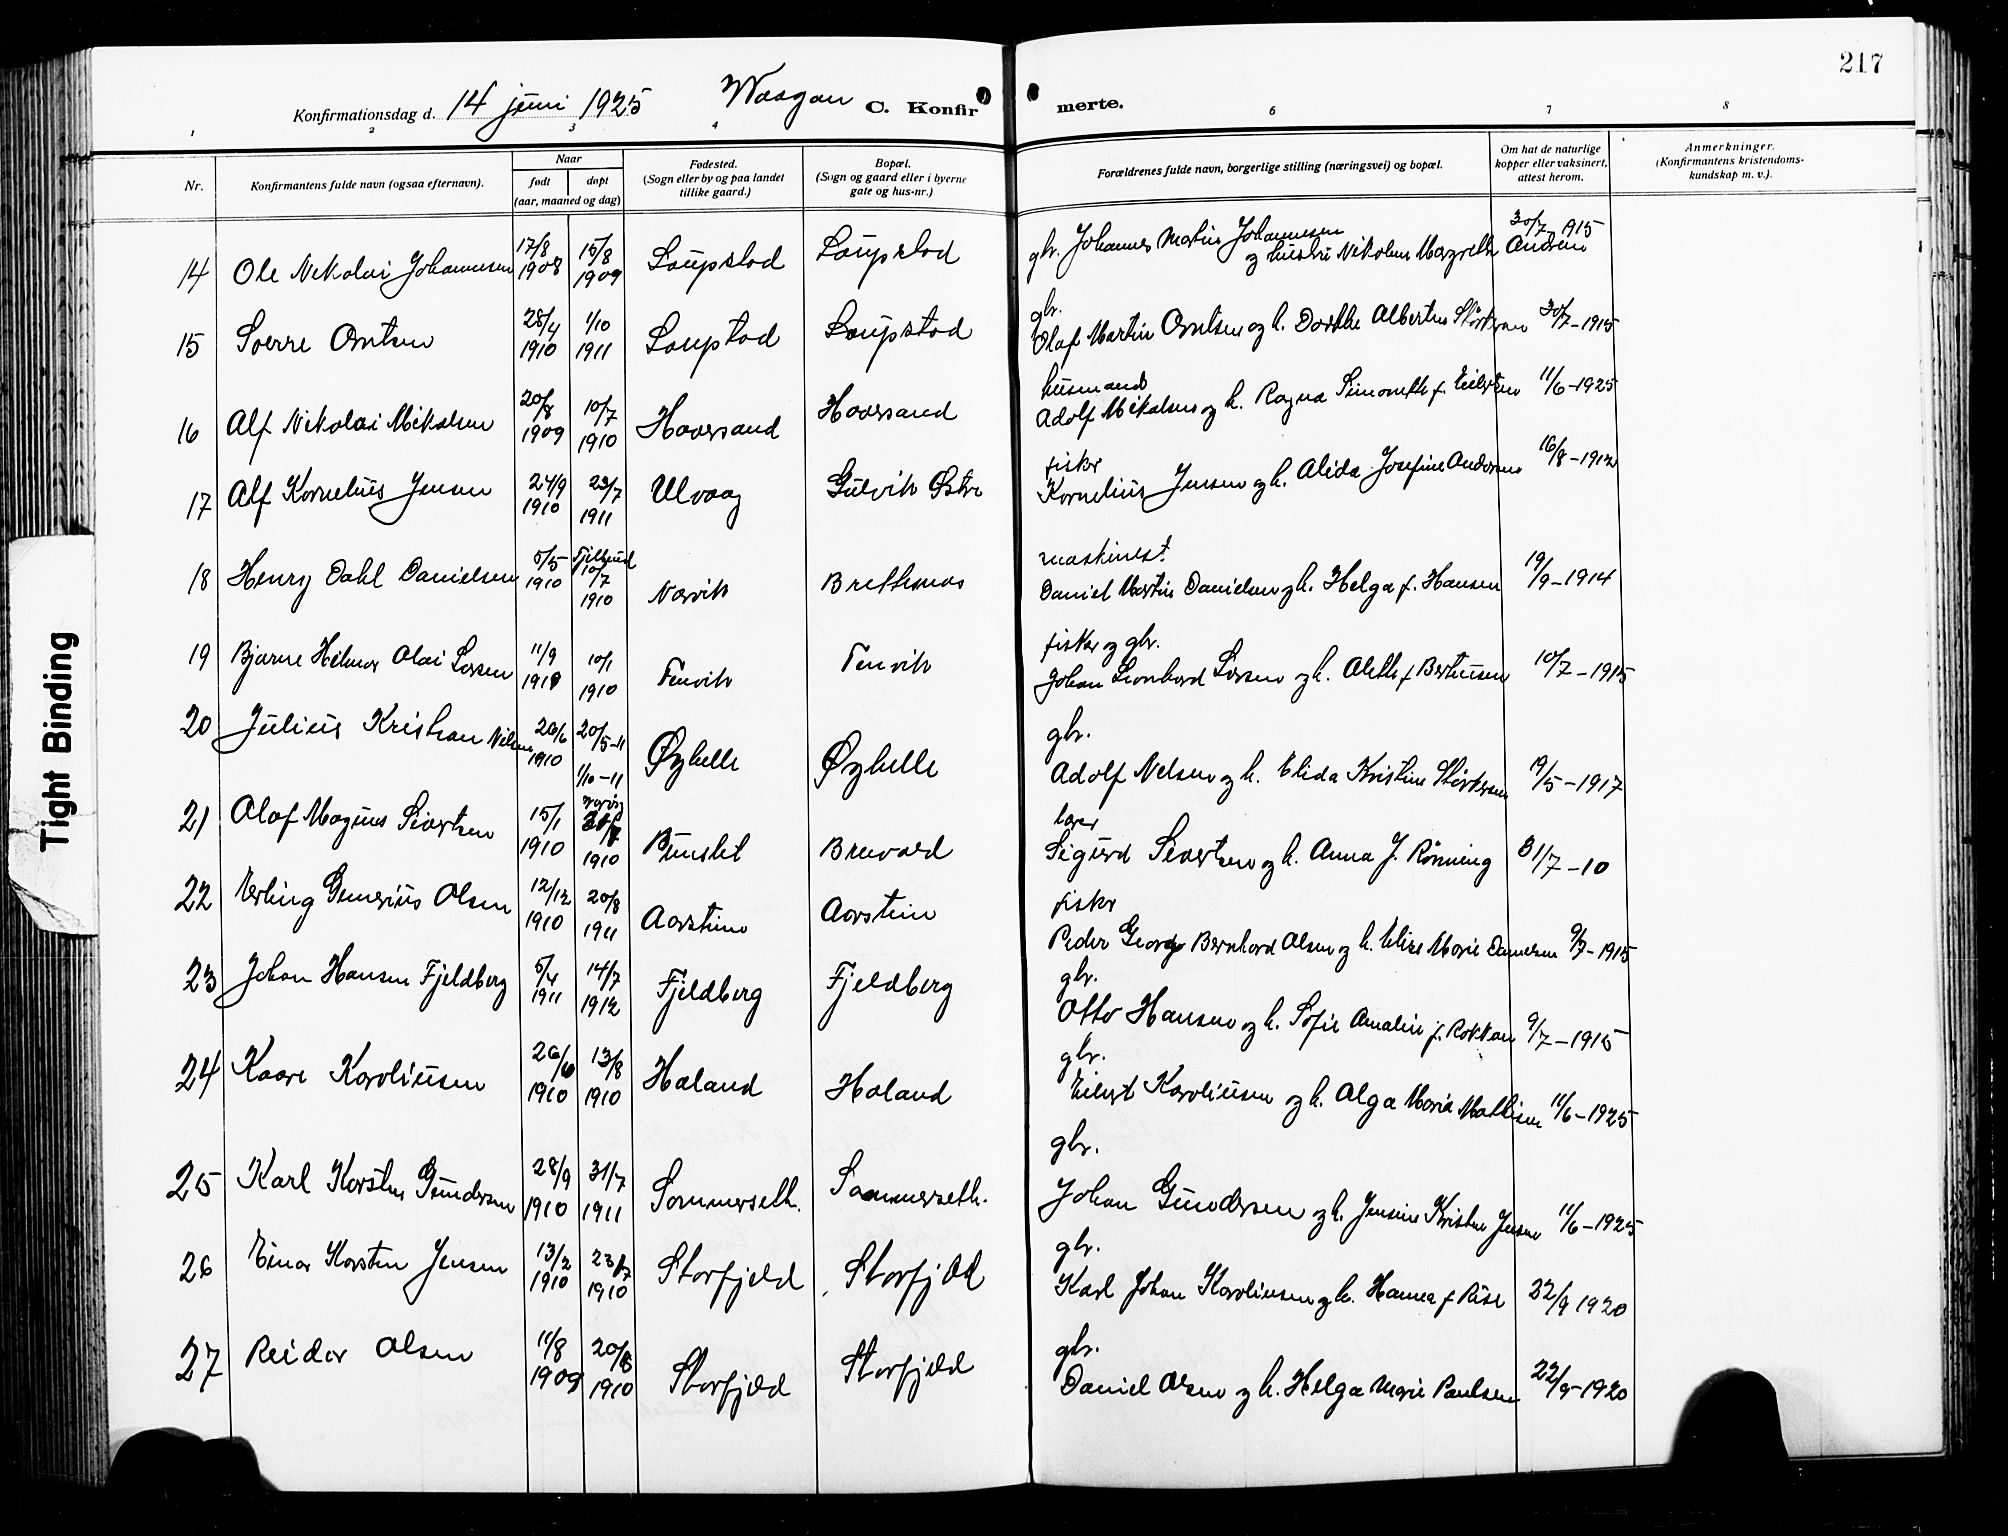 217
Konfirmationsdag d. 14 juni 1925 C. Konfirmerte.
1 2 3 4 6 7 8
Nr.
Konfirmantens fulde navn (ogsaa efternavn).
Naar
født døpt
(aar, maaned og dag)
Fødested.
(Sogn eller by og paa landet
tillike gaard.)
Bopæl.
(Sogn og gaard eller i byerne
gate og hus-nr.)
Forældrenes fulde navn, borgerlige stilling (næringsvei) og bopæl.
Om hat de naturlige
kopper eller vaksinert,
attest herom.
Anmerkninger.
(Konfirmantens kristendoms-
kundskap m. v.).
14 Ole Nikolai Johannesen 17/8 1908 15/8 1909 Laupstad Laupstad gbr. Johannes Martin Johannesen
og hustru Nikoline Margrethe Andrea 30/7 1915
gbr.
15 Sverre Arntsen 28/4 1910 1/10 1911 Laupstad Laupstad Olaf Martin Arntsen og h. Dorthe Albertine Størkersen 30/7-1915
husmand
16 Alf Nikolai Mikalsen 20/8 1909 10/7 1910 Haversand Haversand Adolf Mikalsen og h. Ragna f. Eilertsen 11/6-1925
fisker
17 Alf Kornelius Jensen 24/9 1910 23/7 1911 Ulvaag Gulvik Østre Kornelius Jensen og h. Alida Josefine Andersen 16/8-1912
maskinest.
18 Henry Dahl Danielsen 5/5 1910 10/7 1910 Narvik Brettesnes Daniel Martin Danielsen og h. Helga f. Hansen 19/9-1914
fisker og gbr.
19 Bjarne Hilmar Olai Larsen 11/9 10/1 1910 Finvik Finvik Johan Leonhard Larsen og h. Alette f. Berthusen 10/7-1915
gbr.
20 Julius Kristian Nilsen 26/6 1910 20/5-11 1/10-11 Øyhelle Øyhelle Adolf Nilsen og h. Elida Kristine Størkersen 19/5-1917
lærer
21 Olaf Magnus Sivertsen 15/1 1910 1910 Sigurd Sivertsen og h. Anna J. Rønning 31/7-10
fisker
22 Erling Gunerius Olsen 12/12 1910 20/8 1911 Aarstein Aarstein Peder Georg Bernhard Olsen og h. Elise Marie Danielsen 9/7-1915
gbr.
23 Johan Hansen Fjeldberg 5/4 1911 14/7 1912 Fjeldberg Fjeldberg Otto Hansen og h. Sofie Amalie f. 9/7-1915
gbr.
24 Kaare Karoliussen 26/6 1910 13/8 1910 Haland Haland Eilert Karoliussen og h. Alga Maria Mathisen 11/6-1925
gbr.
25 Karl Torsten Gundersen 28/9 1910 31/7 1911 Sommerseth. Sommerseth. Johan Gundersen og h. Jensine Kristine Jensen 11/6-1925
gbr.
26 Einar Torsten Jensen 13/2 1910 23/7 1910 Storfjeld Storfjeld Karl Johan Karoliussen og h. Hanna f. Riise 22/9 1920
gbr.
27 Reidar Olsen 11/8 1909 20/8 1910 Storfjeld Storfjeld Daniel Olsen og h. Helga Marie Paulsen 22/9-1920
Tight Binding